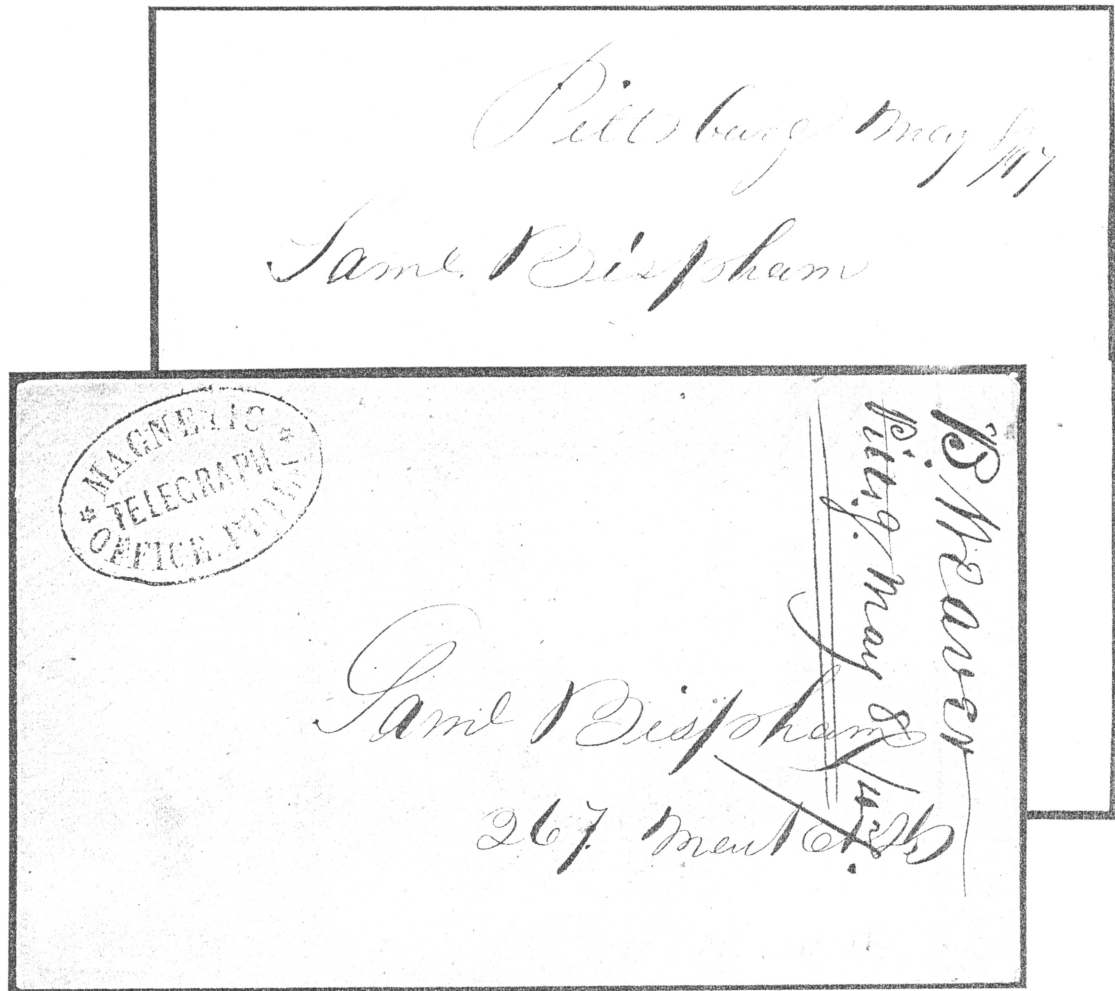 Pittsburg May 8/47
Saml. Bispham
* MAGNETIC *
TELEGRAPH
OFFICE. PHILA.
Saml Bispham
267. Market St
B Weaver
Pittg. May 8/47.